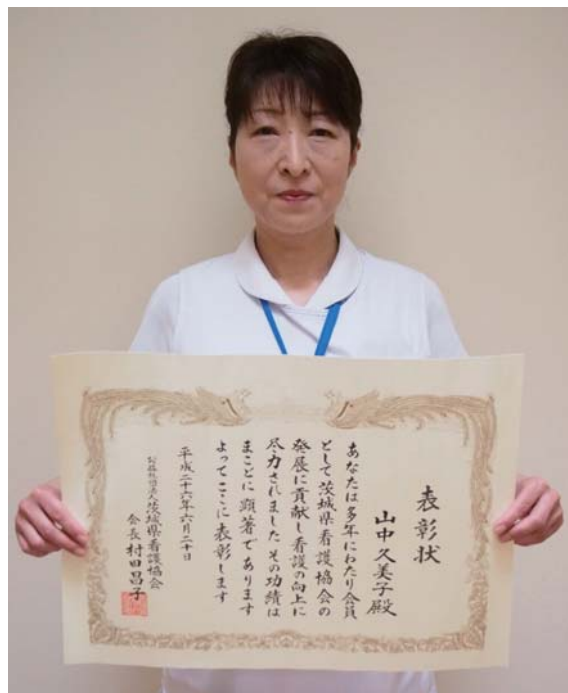 表彰状
山中久美子殿
あなたは多年にわたり会員
として茨城県看護協会の
発展に貢献し看護の向上に
尽力されましたその功績は
まことに顕著であります
よってここに表彰します
平成二十六年六月二十日
公益社団法人茨城県看護協会
会長村田昌子